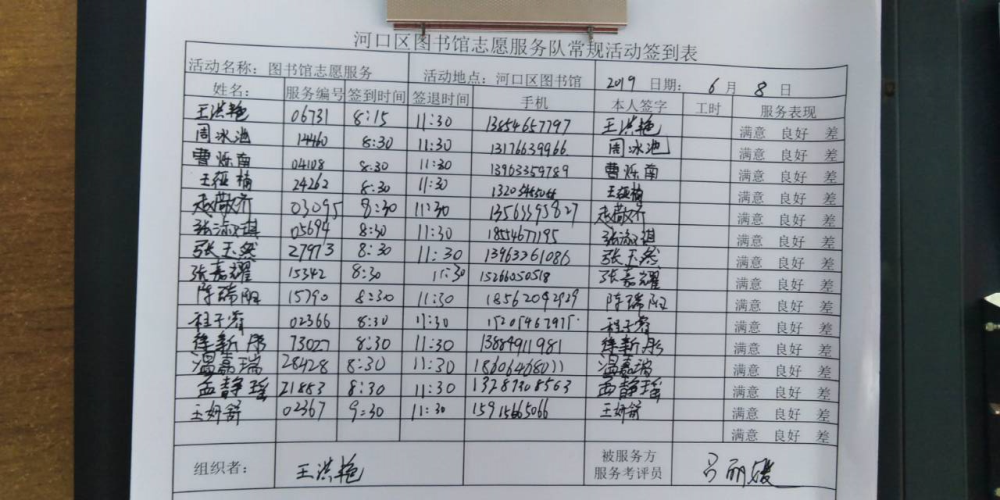 河口区图书馆志愿服务队常规活动签到表
活动名称：图书馆志愿服务 活动地点：河口区图书馆 2019 日期： 6 月 8 日
姓名： 服务编号 签到时间 签退时间 手机 本人签字 工时 服务表现
王洪艳 06731 8:15 11:30 13854657797 王洪艳 满意 良好 差
周冰池 14460 8:30 11:30 13176639966 周冰池 满意 良好 差
曹烁南 04108 8:30 11:30 13963359789 曹烁南 满意 良好 差
24262 8:30 11:30 满意 良好 差
赵敬齐 03095 8:30 11:30 13563395827 赵敬齐 满意 良好 差
张淑琪 05694 8:30 11:30 18554677195 张淑琪 满意 良好 差
张玉然 27973 8:30 11:30 13963361086 张玉然 满意 良好 差
张嘉耀 15342 8:30 11:30 15266050518 张嘉耀 满意 良好 差
陈瑞阳 15790 8:30 11:30 18562042929 陈瑞阳 满意 良好 差
02366 8:30 11:30 满意 良好 差
73027 8:30 11:30 13884911981 满意 良好 差
温嘉瑞 28428 8:30 11:30 18606468011 温嘉瑞 满意 良好 差
孟静瑶 21853 8:30 11:30 13287308563 孟静瑶 满意 良好 差
王妍舒 02367 9:30 11:30 15915665066 王妍舒 满意 良好 差
满意 良好 差
组织者： 王洪艳 被服务方
服务考评员 吕丽媛